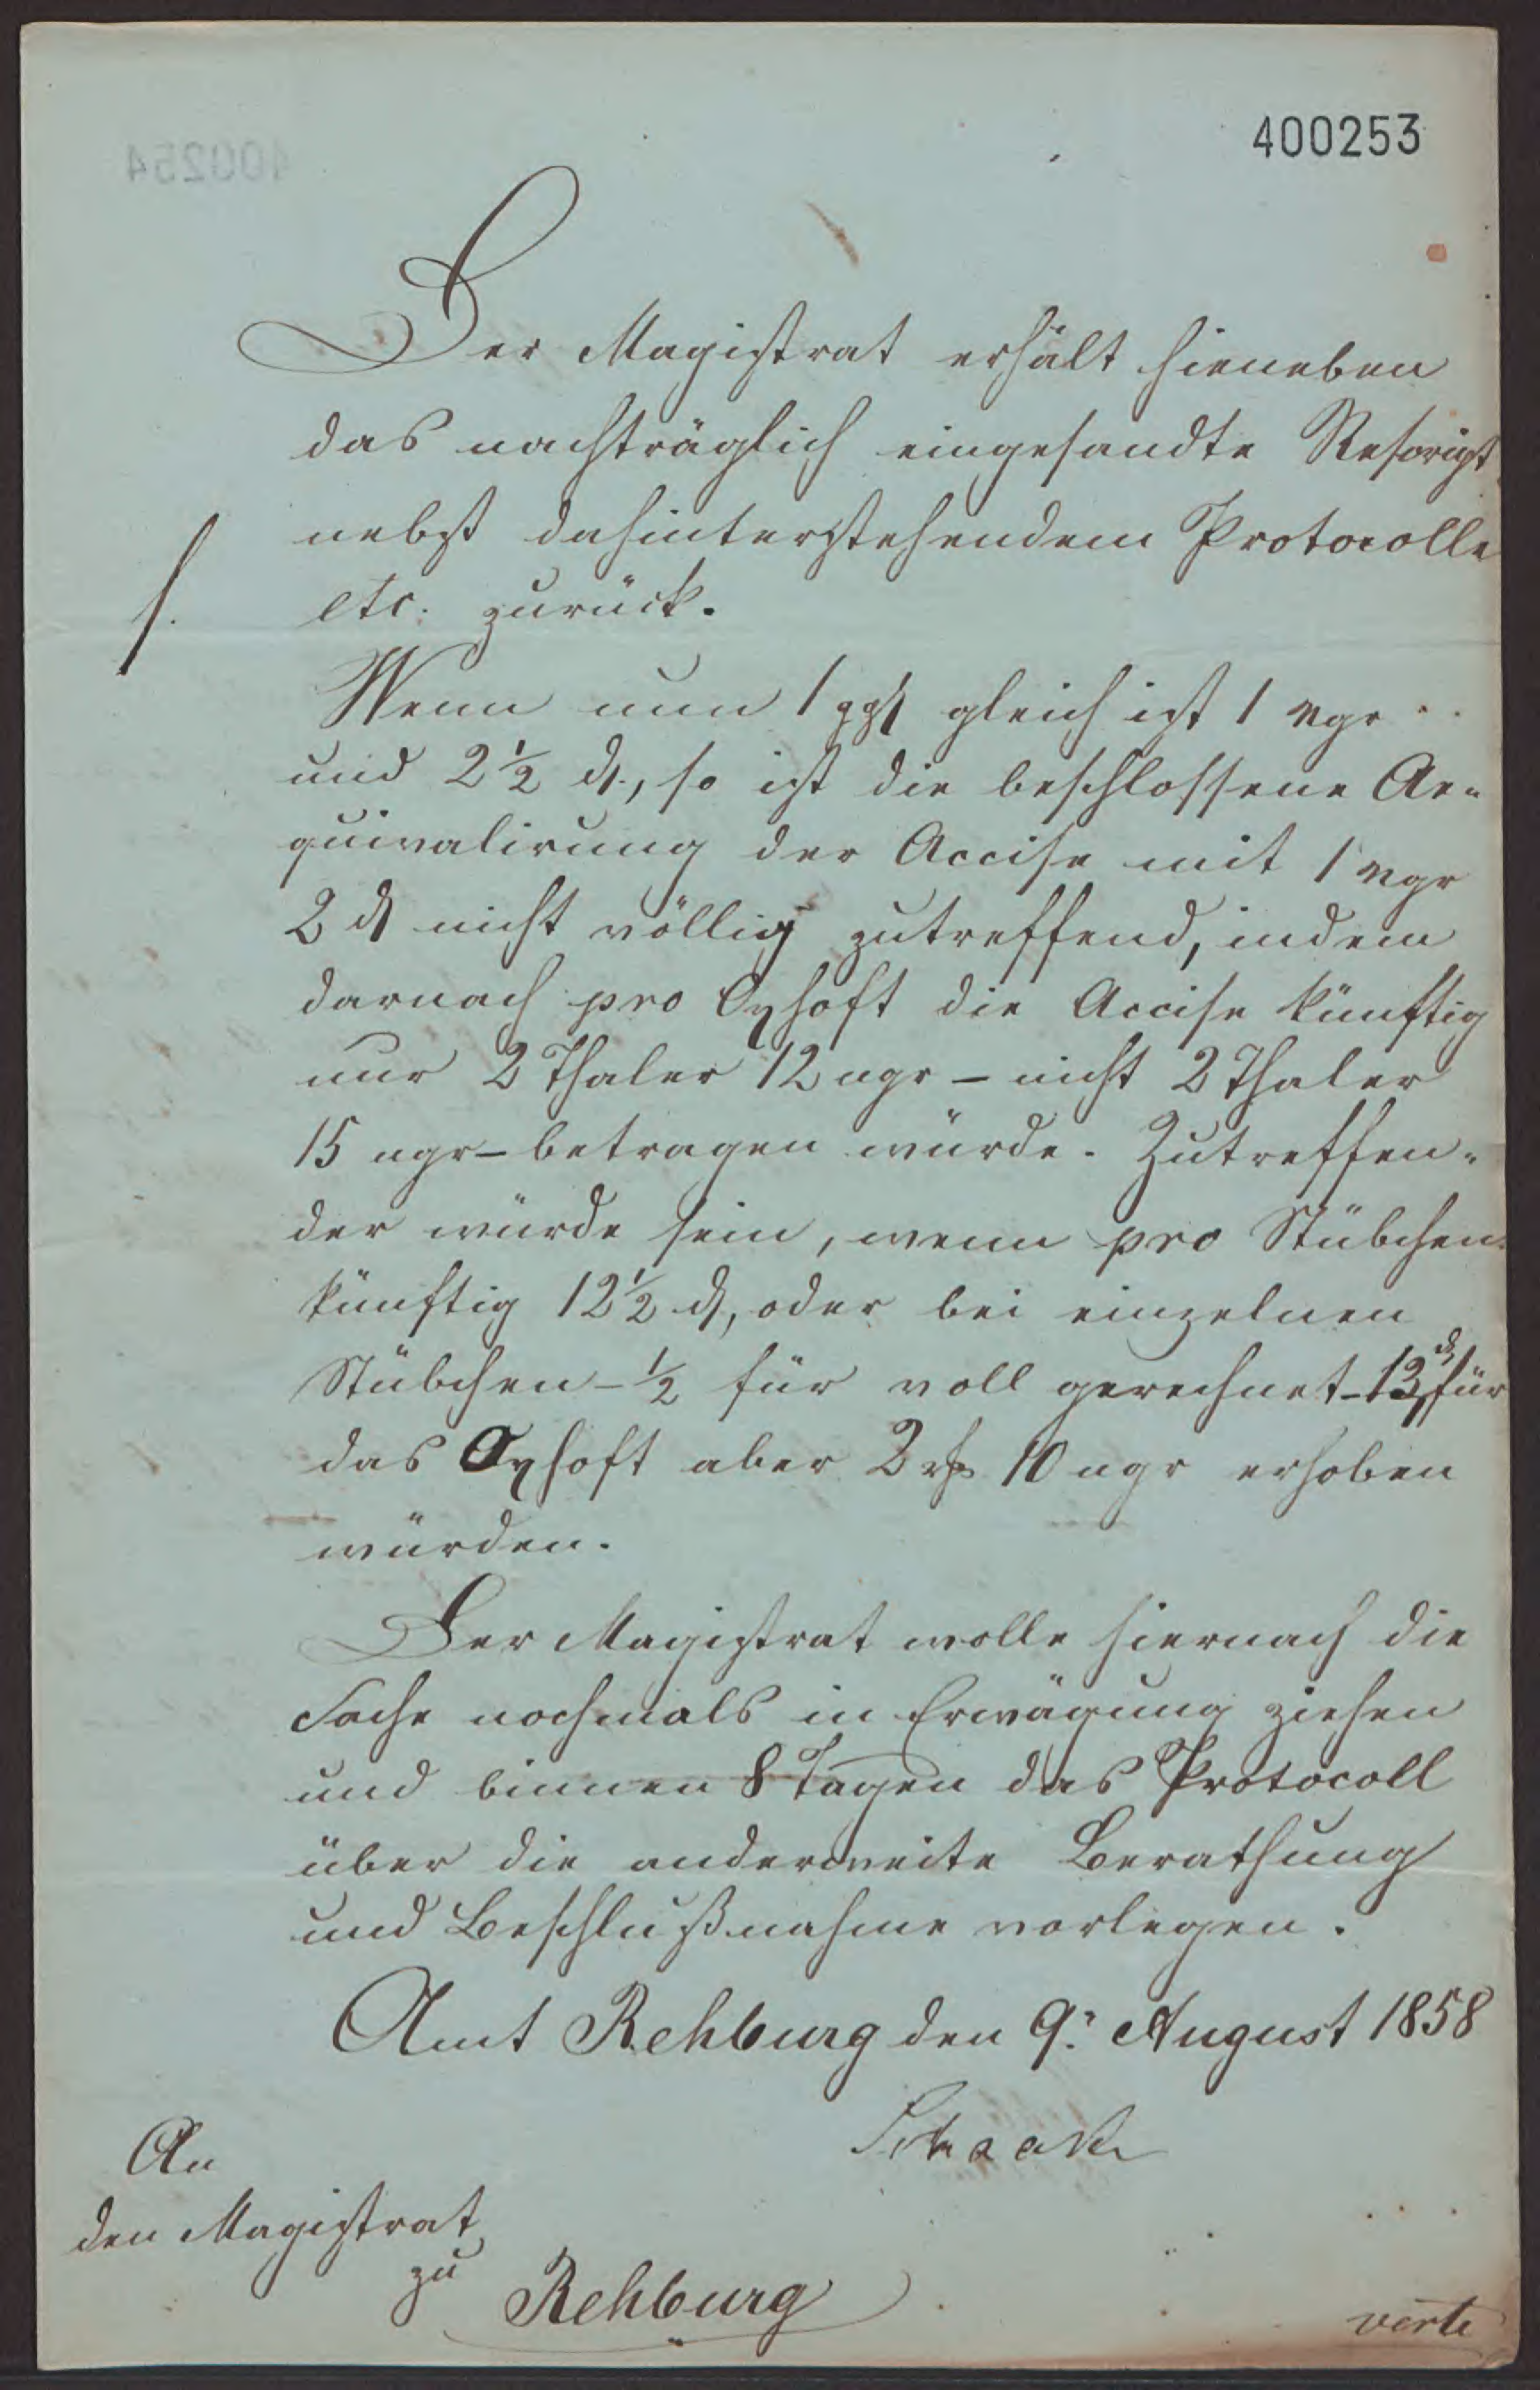 400253
Der Magistrat erhält hieneben
das nachträglich eingesandte Rescript
nebst dahinterstehendem Protocolle
etc: zurück.
Wenn nun 1 ggr gleich ist 1 ngr
und 2½ d., so ist die beschlossene Ae-
quivalirung der Accise mit 1 ngr
2 d nicht völlig zutreffend, indem
darnach pro Oxhoft die Accise künftig
nur 2 Thaler 12 ngr – nicht 2 Thaler
15 ngr – betragen würde. Zutreffen-
der würde sein, wenn pro Stübchen
künftig 12½ d, oder bei einzelnen
Stübchen – ½ für voll gerechnet – 13 d für
das Oxhoft aber 2 rp 10 ngr erhoben
würden.
Der Magistrat wolle hiernach die
Sache nochmals in Erwägung ziehen
und binnen 8 Tagen das Protocoll
über die anderweite Berathung
und Beschlußnahme vorlegen.
Amt Rehburg den 9. August 1858
An
den Magistrat
zu Rehburg
verte